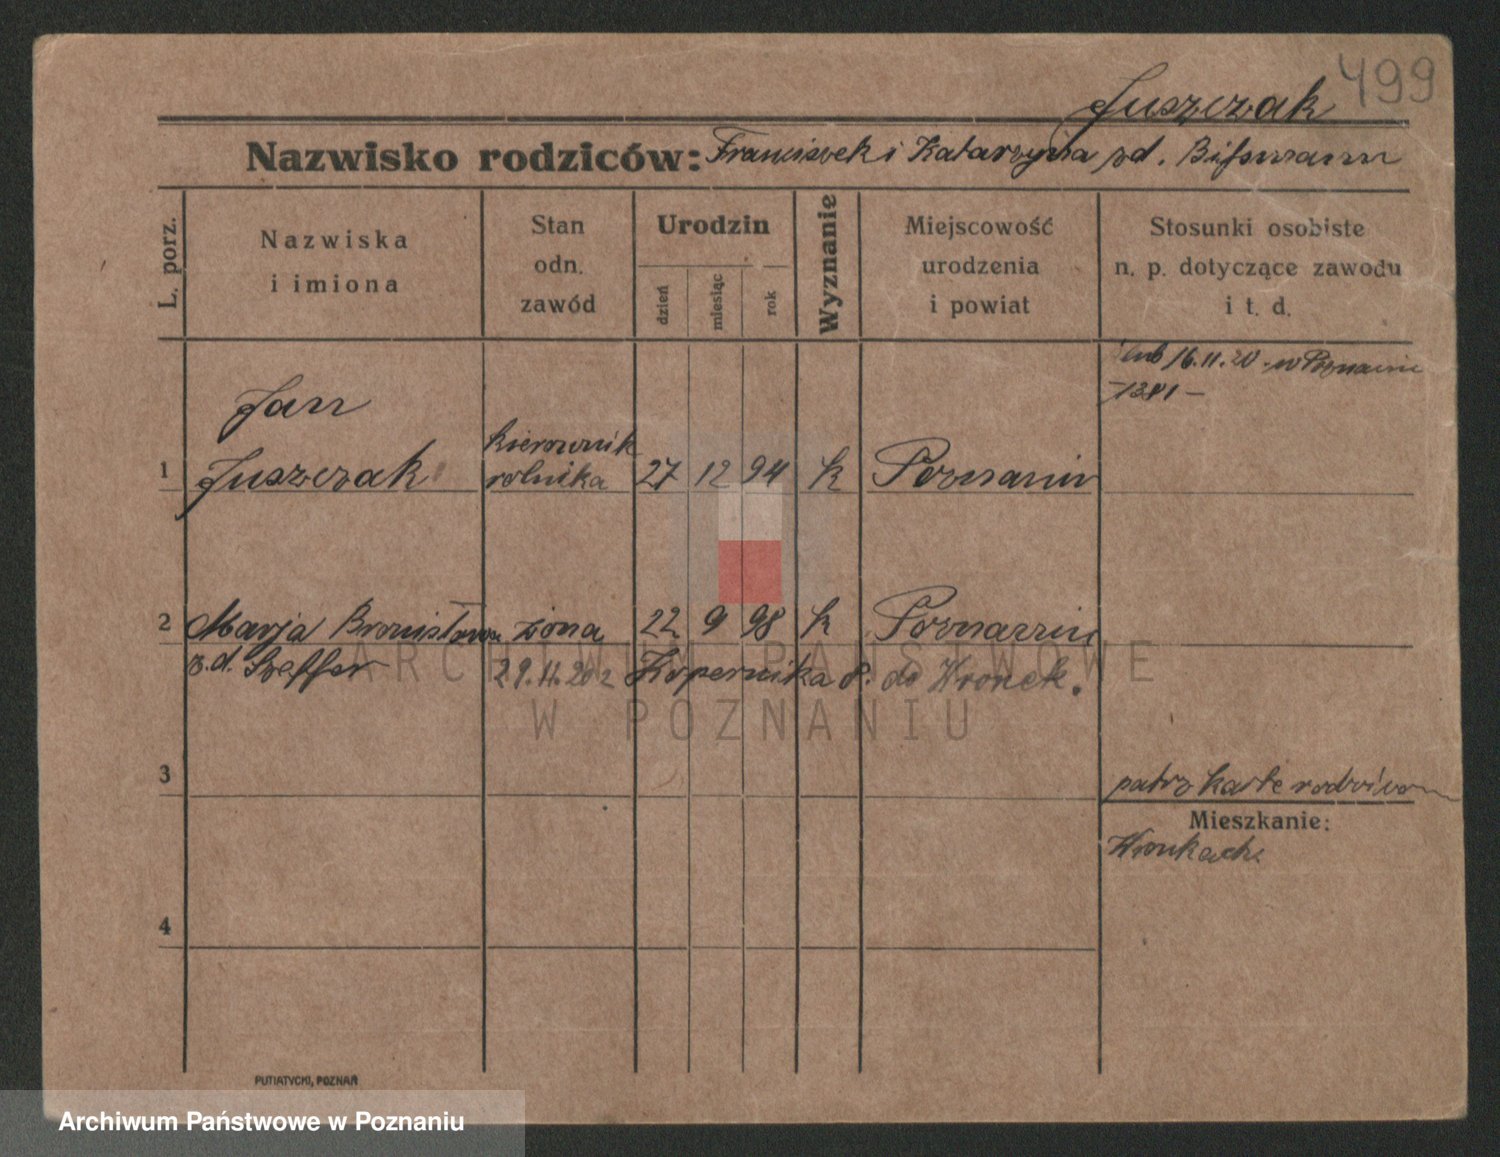 499
Juszczak
Nazwisko rodziców: Franciszek i Katarzyna zd. Bissmann
L. porz.
Nazwiska i imiona
Stan odn. zawód
Urodzin
dzień
miesiąc
rok
Wyznanie
Miejscowość urodzenia i powiat
Stosunki osobiste n. p. dotyczące zawodu i t. d.
ślub 16.11.20. w Poznaniu
1381 –
Jan
kierownik
1 Juszczak rolnika 27 12 94 k Poznaniu
2 Marja Bronisława żona 22 9 98 k Poznaniu
z.d. Szeffer 29.11.20 z Kopernika 8. do Wronek.
ARCHIWUM PAŃSTWOWE
W POZNANIU
3
patrz kartę rodziców
Mieszkanie:
Wronkach
4
PUTIATYCKI, POZNAŃ
Archiwum Państwowe w Poznaniu